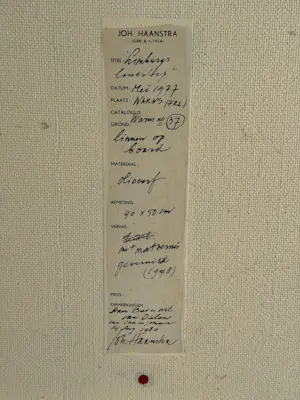 JOH. HAANSTRA
TITEL: Limburgs
landschap
DATUM: Mei 1977
PLAATS: WARNS (FRL.)
CATALOGUS
GROND: Warns no (37)
linnen op
board
MATERIAAL:
olieverf
AFMETING:
40 x 50 cm
VERNIS:
met matvernis
gevernist
(1978)
PRIJS:
OPMERKINGEN:
Aan
van
1980
Joh. Haanstra